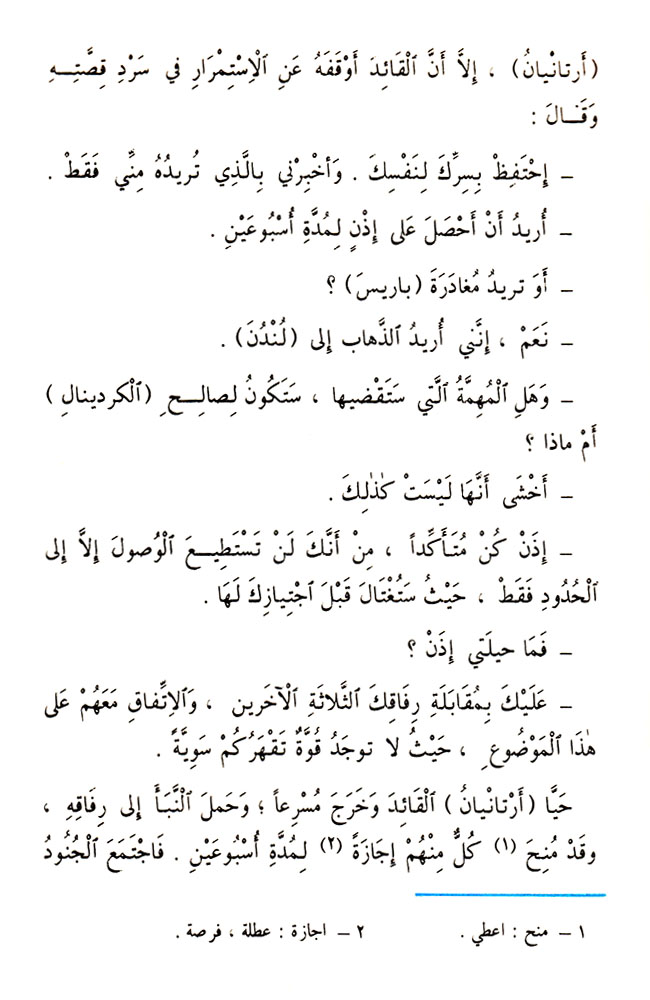 (أَرتانْيانُ) ، إِلاَّ أَنَّ ٱلْقَائِدَ أَوْقَفَهُ عَنِ ٱلْاِسْتِمْرَارِ في سَرْدِ قِصَّتِـــهِ
وَقَـــالَ :
ــ إِحْتَفِظْ بِسِرِّكَ لِنَفْسِكَ . وَأخْبِرْني بِالَّذِي تُريدُهُ مِنِّي فَقَطْ .
ــ أُريدُ أَنْ أَحْصَلَ عَلى إِذْنٍ لِمُدَّةِ أُسْبُوعَيْنِ .
ــ أَوَ تريدُ مُغادَرَةَ (باريسَ) ؟
ــ نَعَمْ ، إِنَّني أُريدُ ٱلذَّهاب إِلى (لُنْدُنَ) .
ــ وَهَلِ ٱلْمُهِمَّةُ ٱلَّتي سَتَقْضيها ، سَتَكُونُ لِصالِـــحِ (ٱلْكردينالِ)
أَمْ ماذا ؟
ــ أَخْشَى أَنَّهَا لَيْسَتْ كَذٰلِكَ .
ــ إِذَنْ كُنْ مُتَـأَكِّداً ، مِنْ أَنَّكَ لَنْ تَسْتَطِيـــعَ ٱلْوُصولَ إِلاَّ إِلى
ٱلْحُدُودِ فَقَطْ ، حَيْثُ سَتُغْتَالَ قَبْلَ ٱجْتِيازِكَ لَهَا .
ــ فَمَا حيلَتي إِذَنْ ؟
ــ عَلَيْكَ بِمُقَابَلَةِ رِفَاقِكَ ٱلثَّلاثَةِ ٱلْآخَرين ، وَٱلاِتِّفاقِ مَعَهُمْ عَلى
هٰذَا ٱلْمَوْضُوعِ ، حَيْثُ لا توجَدُ قُوَّةٌ تَقْهَرُكُمْ سَوِيَّةً .
حَيَّا (أَرْتانْيانُ) ٱلْقَائِدَ وَخَرَجَ مُسْرِعاً ؛ وَحَملَ ٱلْنَّبَـأَ إِلى رِفاقِهِ ،
وقَدْ مُنِحَ (١) كُلٌّ مِنْهُمْ إِجَازَةً (٢) لِمُدَّةِ أُسْبُوعَيْنِ . فَاجْتَمَعَ ٱلْجُنُودُ
١ ــ منح : اعطي . ٢ ــ اجازة : عطلة ، فرصة .